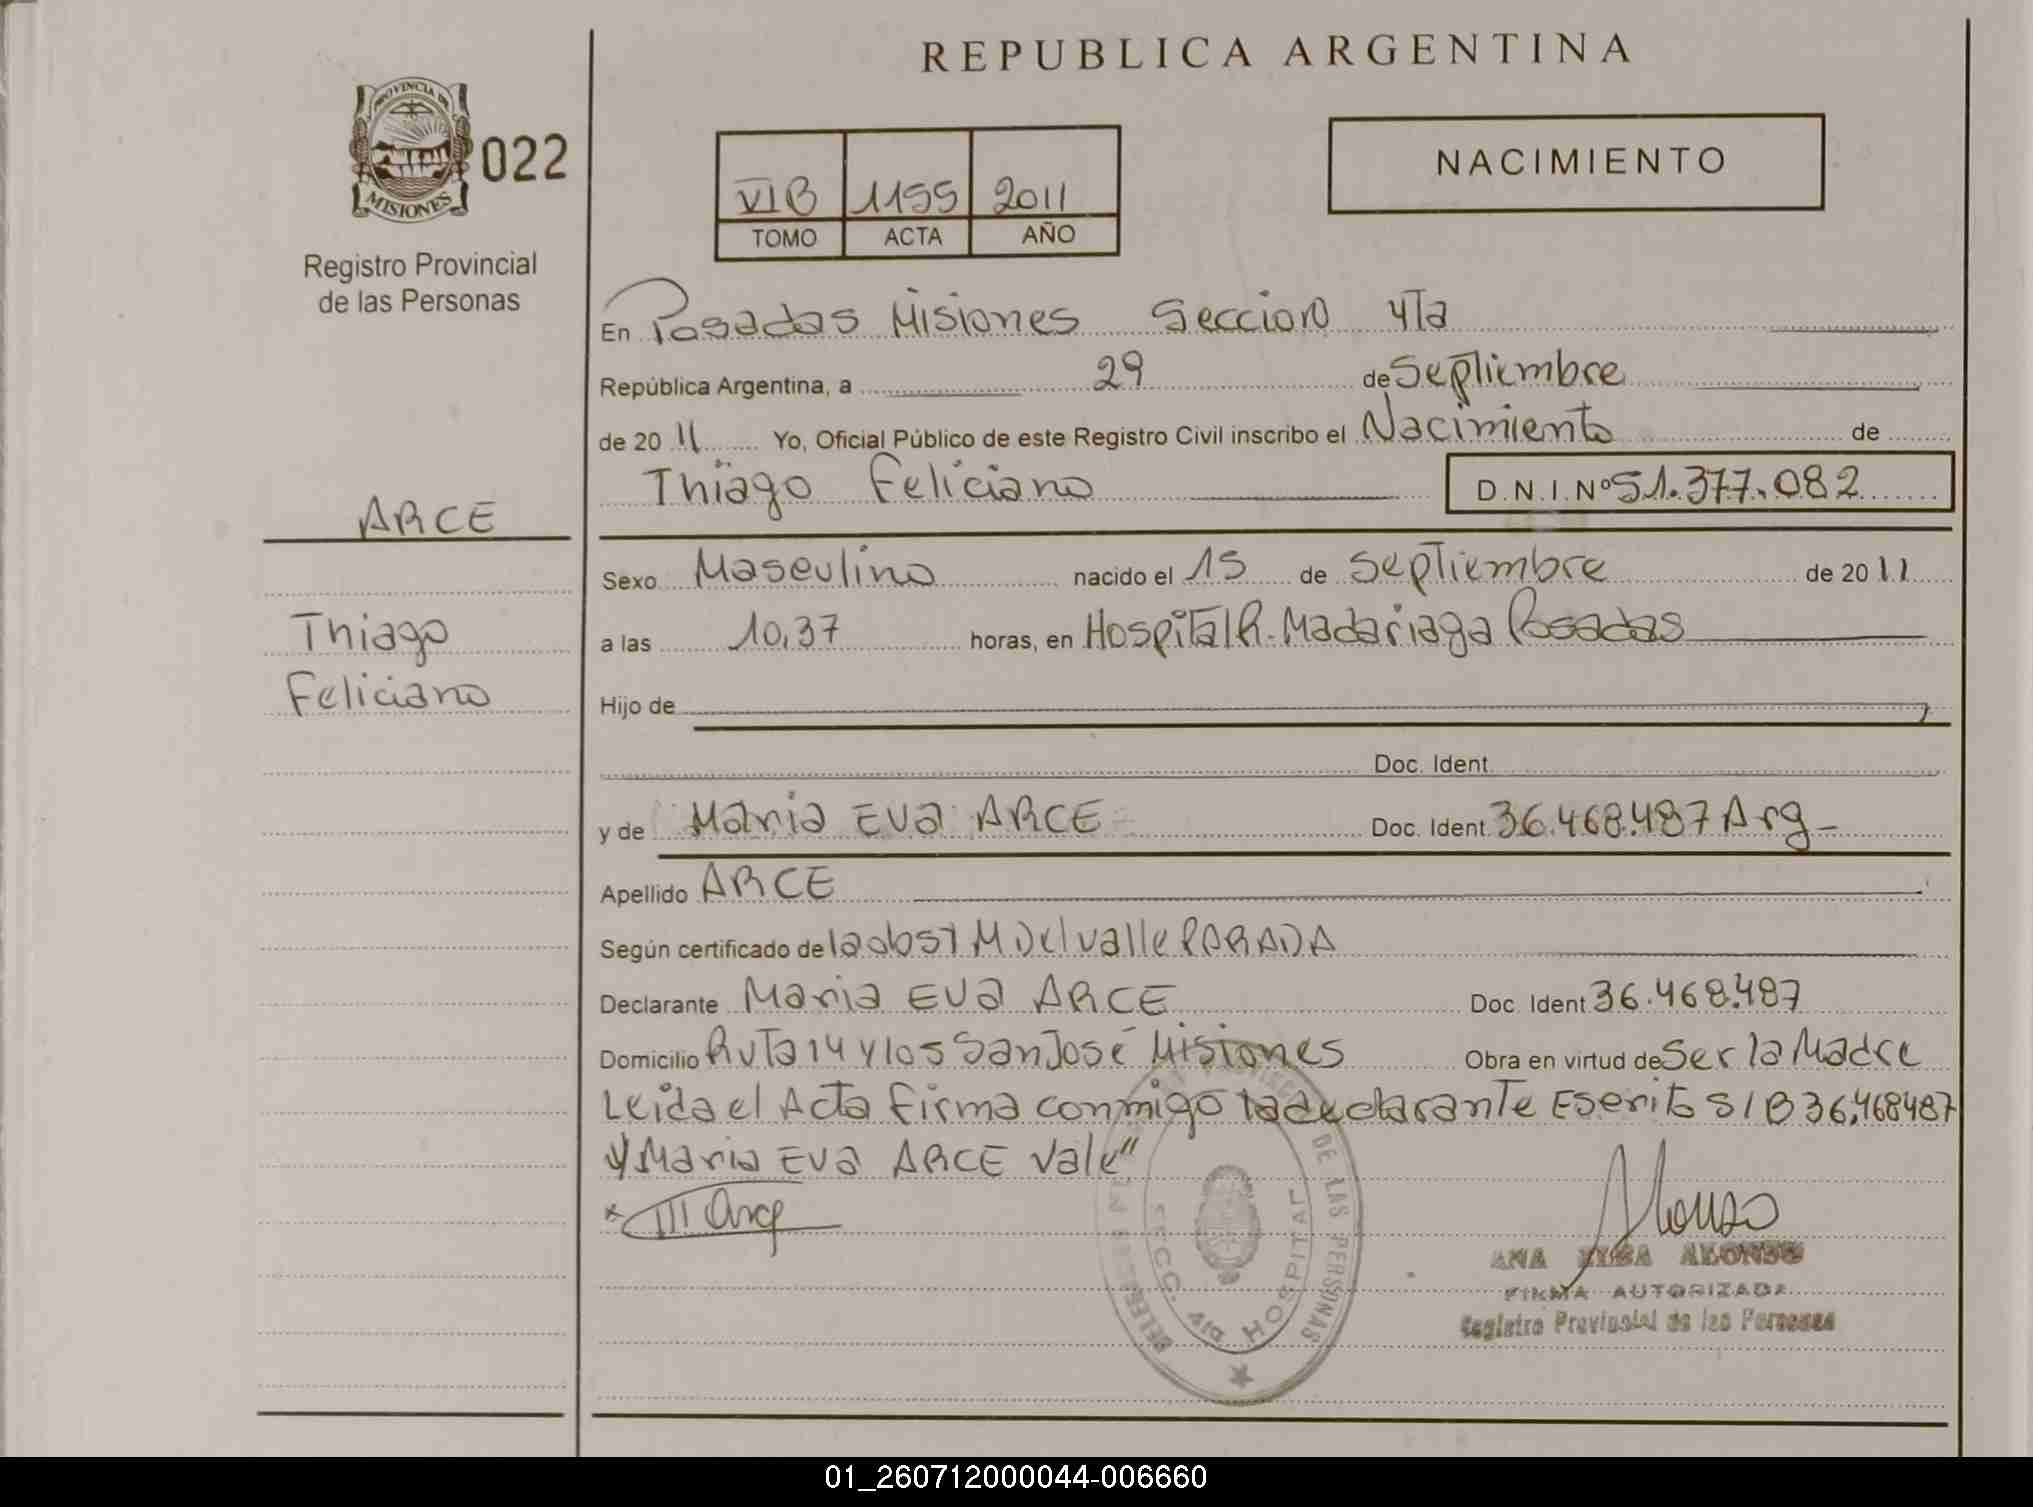 REPUBLICA ARGENTINA
PROVINCIA DE
MISIONES
022
Registro Provincial
de las Personas
NACIMIENTO
VIB 1155 2011
TOMO ACTA AÑO
En Posadas Misiones Seccion 4Ta
República Argentina, a 29 de Septiembre
de 2011 Yo, Oficial Público de este Registro Civil inscribo el Nacimiento de
Thiago Feliciano D.N.I.Nº 51.377.082
ARCE
Thiago
Feliciano
Sexo Masculino nacido el 15 de Septiembre de 2011
a las 10,37 horas, en Hospital R. Madariaga Posadas
Hijo de
Doc. Ident.
y de Maria Eva ARCE Doc. Ident. 36.468.487 Arg
Apellido ARCE
Según certificado de la obst M Del valle PARADA
Declarante Maria Eva ARCE Doc. Ident 36.468.487
Domicilio Ruta 14 y 105 San José Misiones Obra en virtud de Ser la Madre
Leida el Acta firma conmigo la declarante Escrito S/B 36.468487
y Maria Eva ARCE Vale"
Arce
Alonso
ANA ALONSO
FIRMA AUTORIZADA
Registro Provincial de las Personas
DE LAS PERSONAS
SECC. 4ta HOSPITAL
01_260712000044-006660